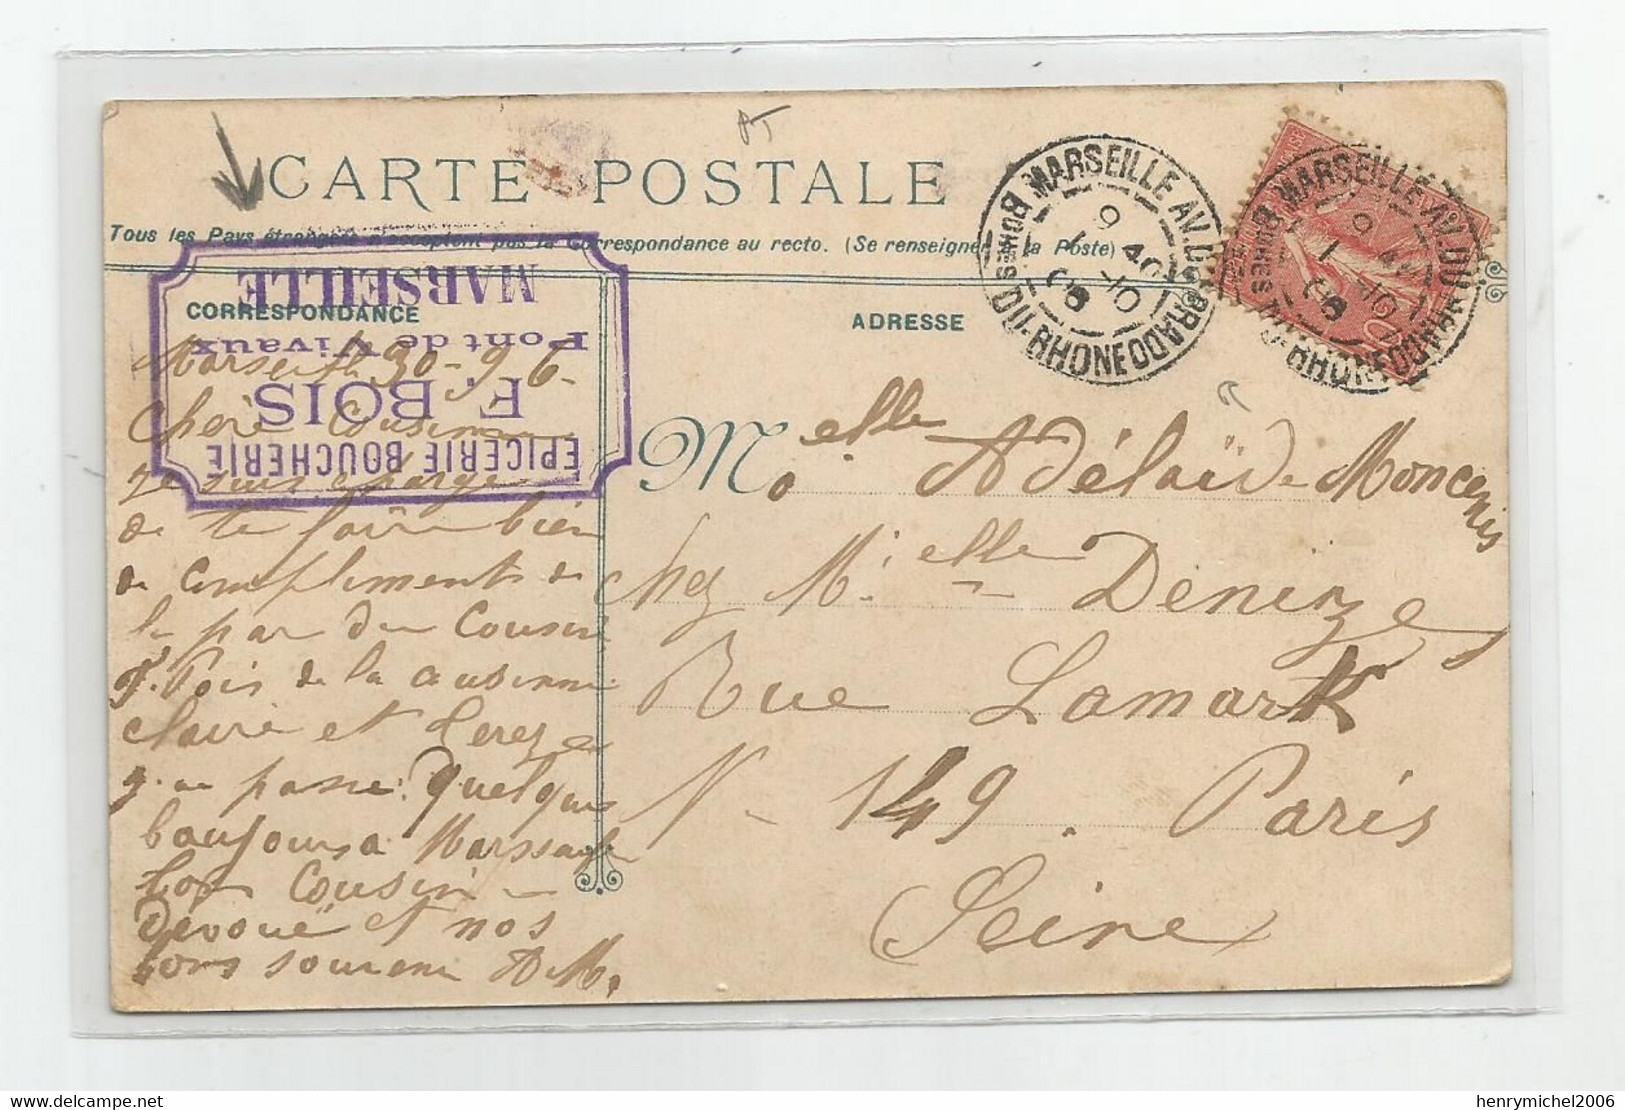 CARTE POSTALE
Tous les Pays étrangers n'acceptent pas la Correspondance au recto. (Se renseigner à la Poste)
CORRESPONDANCE
ADRESSE
EPICERIE BOUCHERIE
F. BOIS
Pont de Vivaux
MARSEILLE
MARSEILLE AV. DU PRADO
BOUCHES-DU-RHONE
MARSEILLE AV. DU PRADO
BOUCHES-DU-RHONE
Marseille 30-9-6-
Chère Cousine
Je suis chargé
de te faire bien
de compliments de
la par du Cousin
F. Bois de la cousine
Claire et
passe quelques
toujours a
ton Cousin
Dévoué et nos
bons souvenir A M.
Melle Adélaïde Moncenis
chez Melle Denize
Rue Lamark
N- 149. Paris
Seine
henrymichel2006